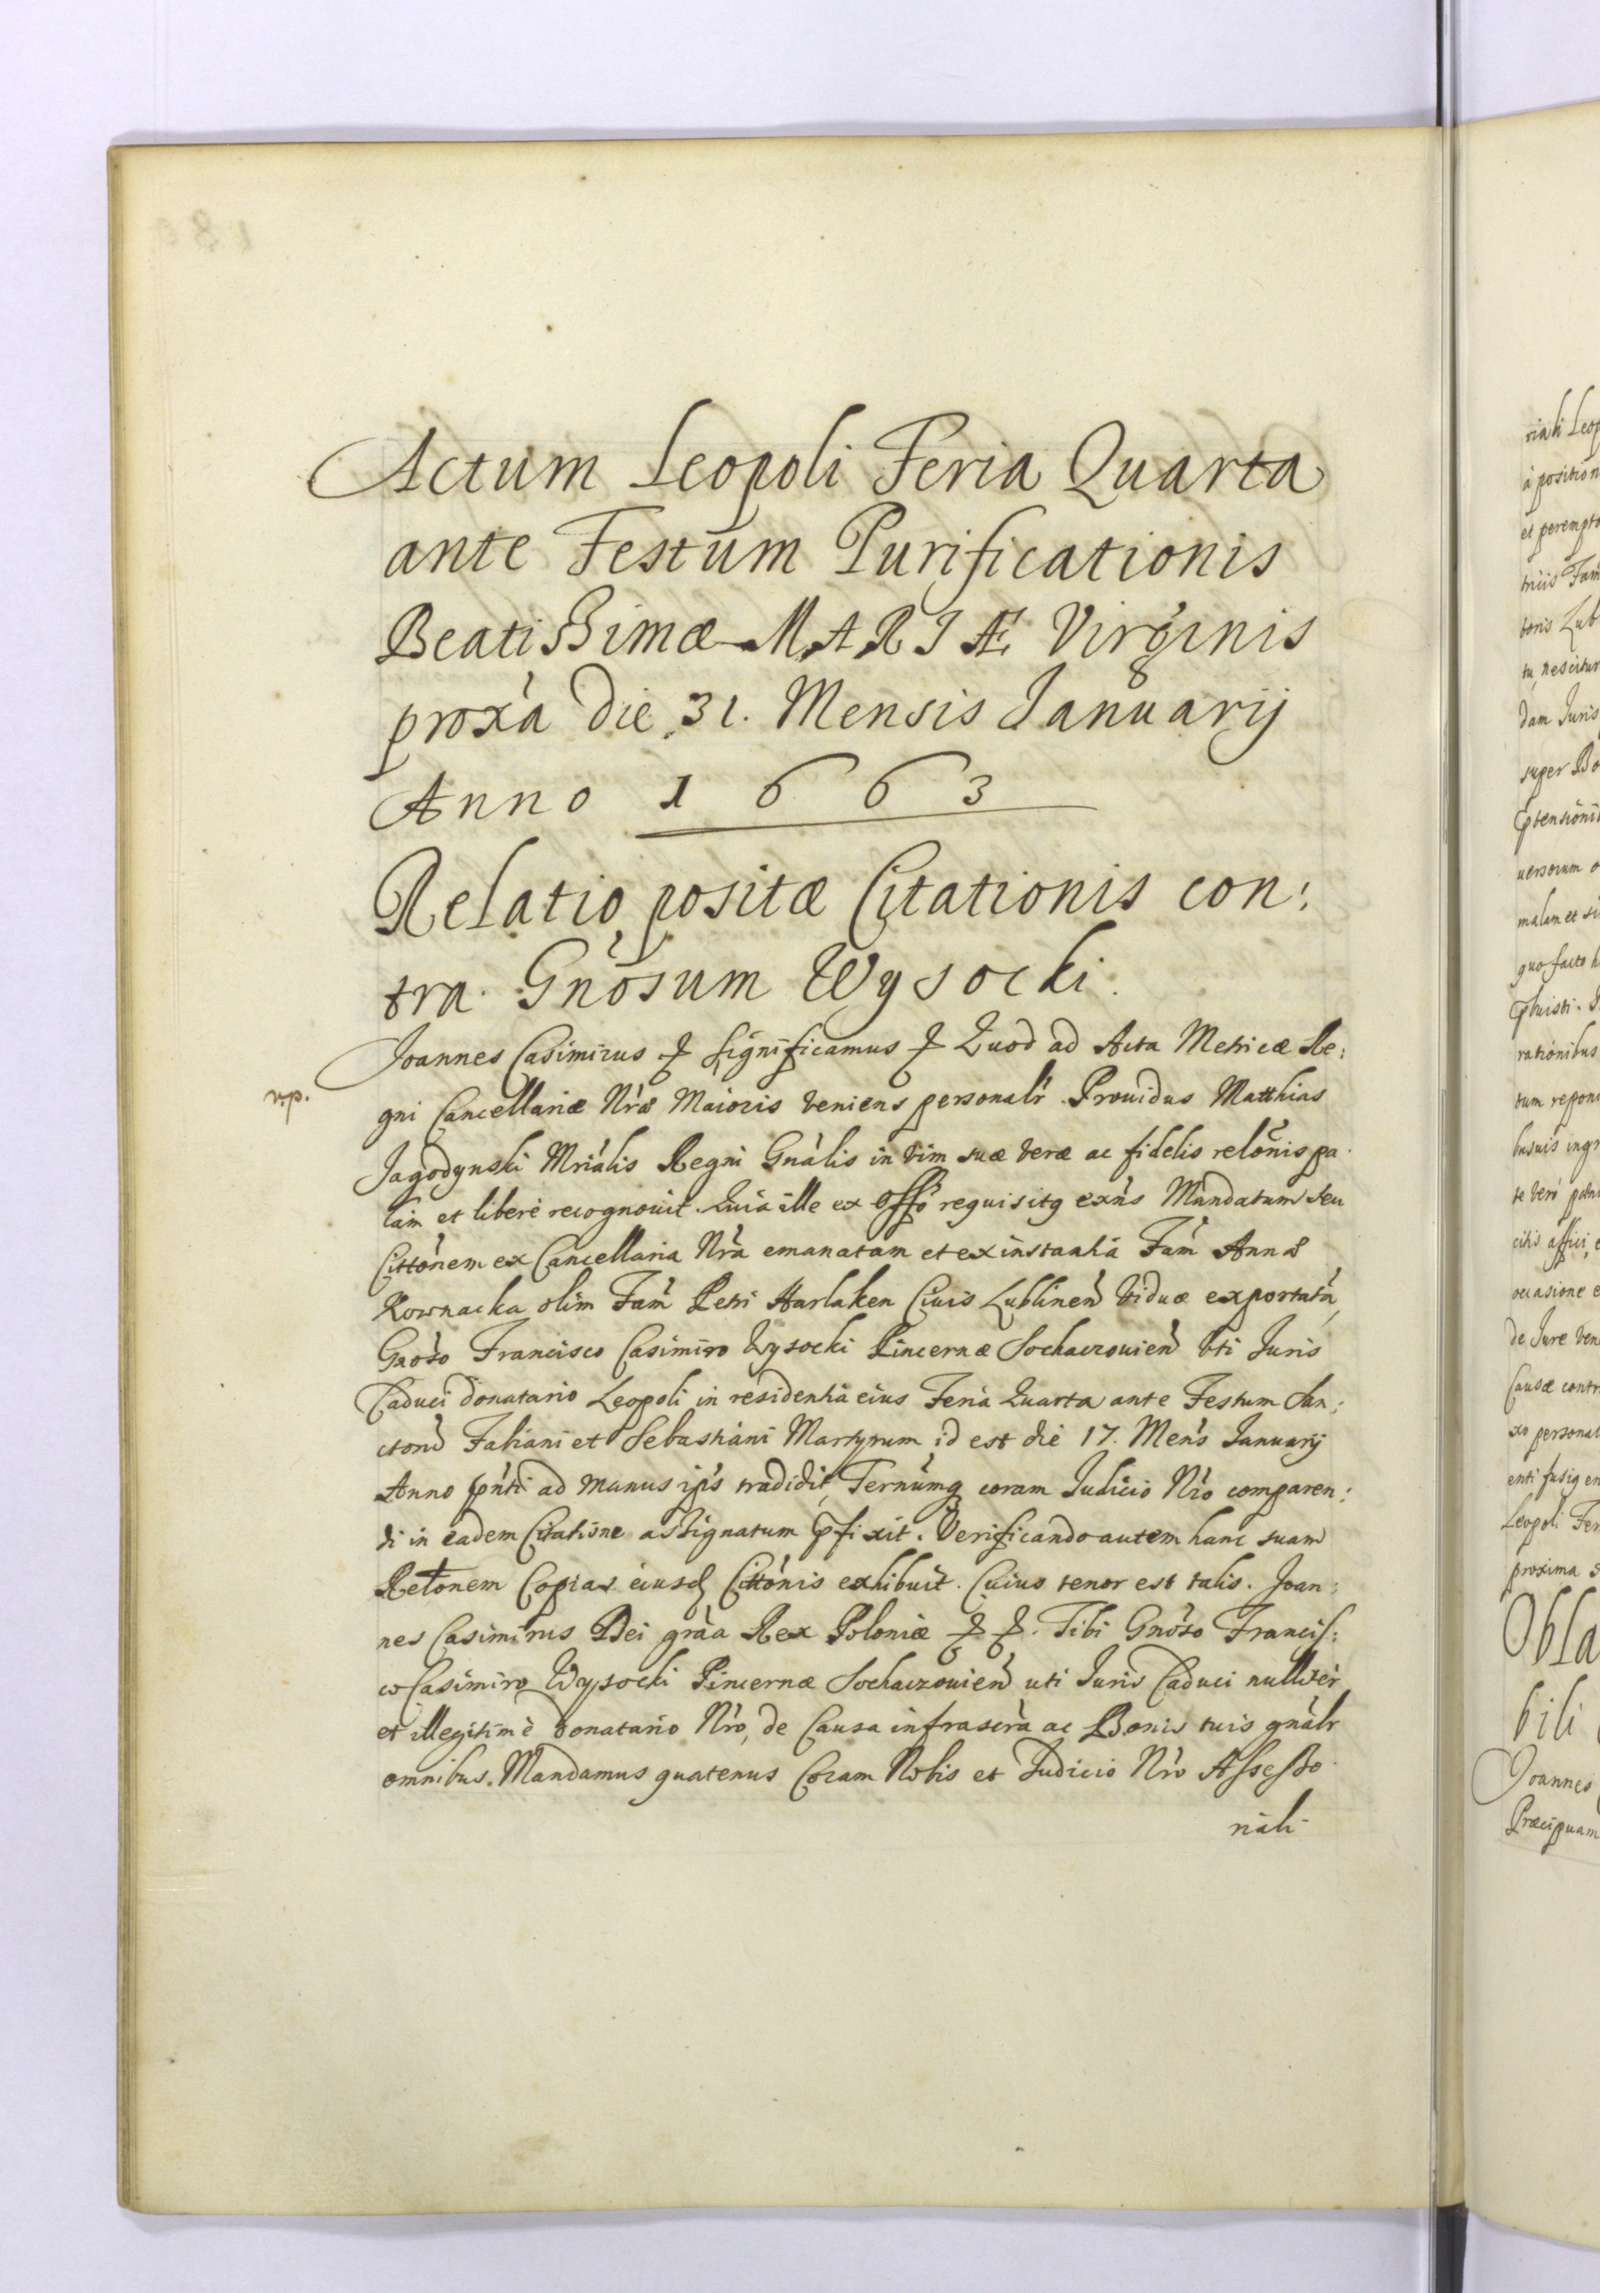 Actum Leopoli Feria Quarta
ante Festum Purificationis
Beatissimæ MARIÆ Virginis
proxà die 31. Mensis Januarij
Anno 1663
Relatio positæ Citationis con:
tra Gnosum Wysocki.
Joannes Casimirus & Significamus & Quod ad Acta Metricæ Re:
v.p.
gni Cancellariæ Nræ Maioris veniens personalr Prouidus Matthias
Jagodynski Mrialis Regni Gnalis in vim suæ veræ ac fidelis relonis pa
lam et libere recognouit. Quia ille ex offo requisitq exns Mandatum seu
Cittonem ex Cancellaria Nra emanatam et ex instantia Fam Annæ
Kownacka olim Fam Petri Harlaken Ciuis Lublinen Viduæ exportatam
Gnoso Francisco Casimiro Wysocki Pincernæ Sochaczouien Vti Juris
Caduci donatario Leopoli in residentia eius Feria Quarta ante Festum San:
ctoru Fabiani et Sebastiani Martyrum id est die 17. Mens Januarij
Anno pnti ad manus ips tradidit, Ternumq coram Judicio Nro comparen:
di in eadem Citatione assignatum pfixit. Verificando autem hanc suam
Relonem Copias eiusd Cittonis exhibuit. Cuius tenor est talis. Joan:
nes Casimirus Dei graa Rex Poloniæ & &. Tibi Gnoso Francis:
co Casimiro Wysocki Pincernæ Sochaczouien uti Juris Caduci nulliter
et illegitimè donatario Nro, de Causa infrascra ac Bonis tuis gnalr
omnibus. Mandamus quatenus Coram Nobis et Judicio Nro Assesso
riali
riali Leop
à position
et perempto
triis Fam
toris Lub
tu, nescitur
dam Juris
super Bo
ptensioni
uersorum o
malam et si
quo facto h
rationibus
tum reponi
busuis ingr
te vero
citis affici, e
occasione e
de Jure Ven
Causæ contr
xo personal
enti
Leopoli Fer
proxima
Obla
bili
Joannes
Præcipuam